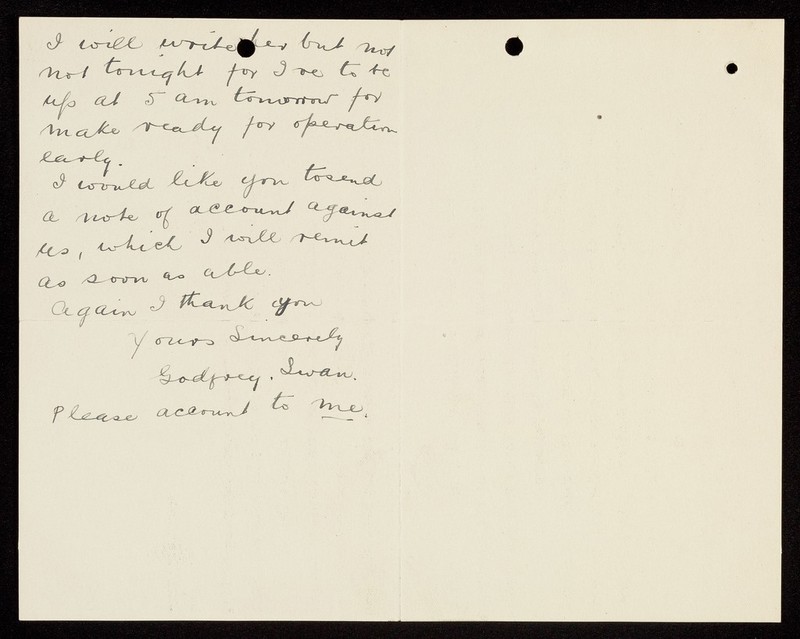 I will write her but not
not tonight for I've to be
up at 5 am tomorrow for
make ready for operation
early.
I would like you to send
a note of account against
us, which I will remit
as soon as able.
Again I thank you
Yours Sincerely
Godfrey. Swan.
Please account to me.